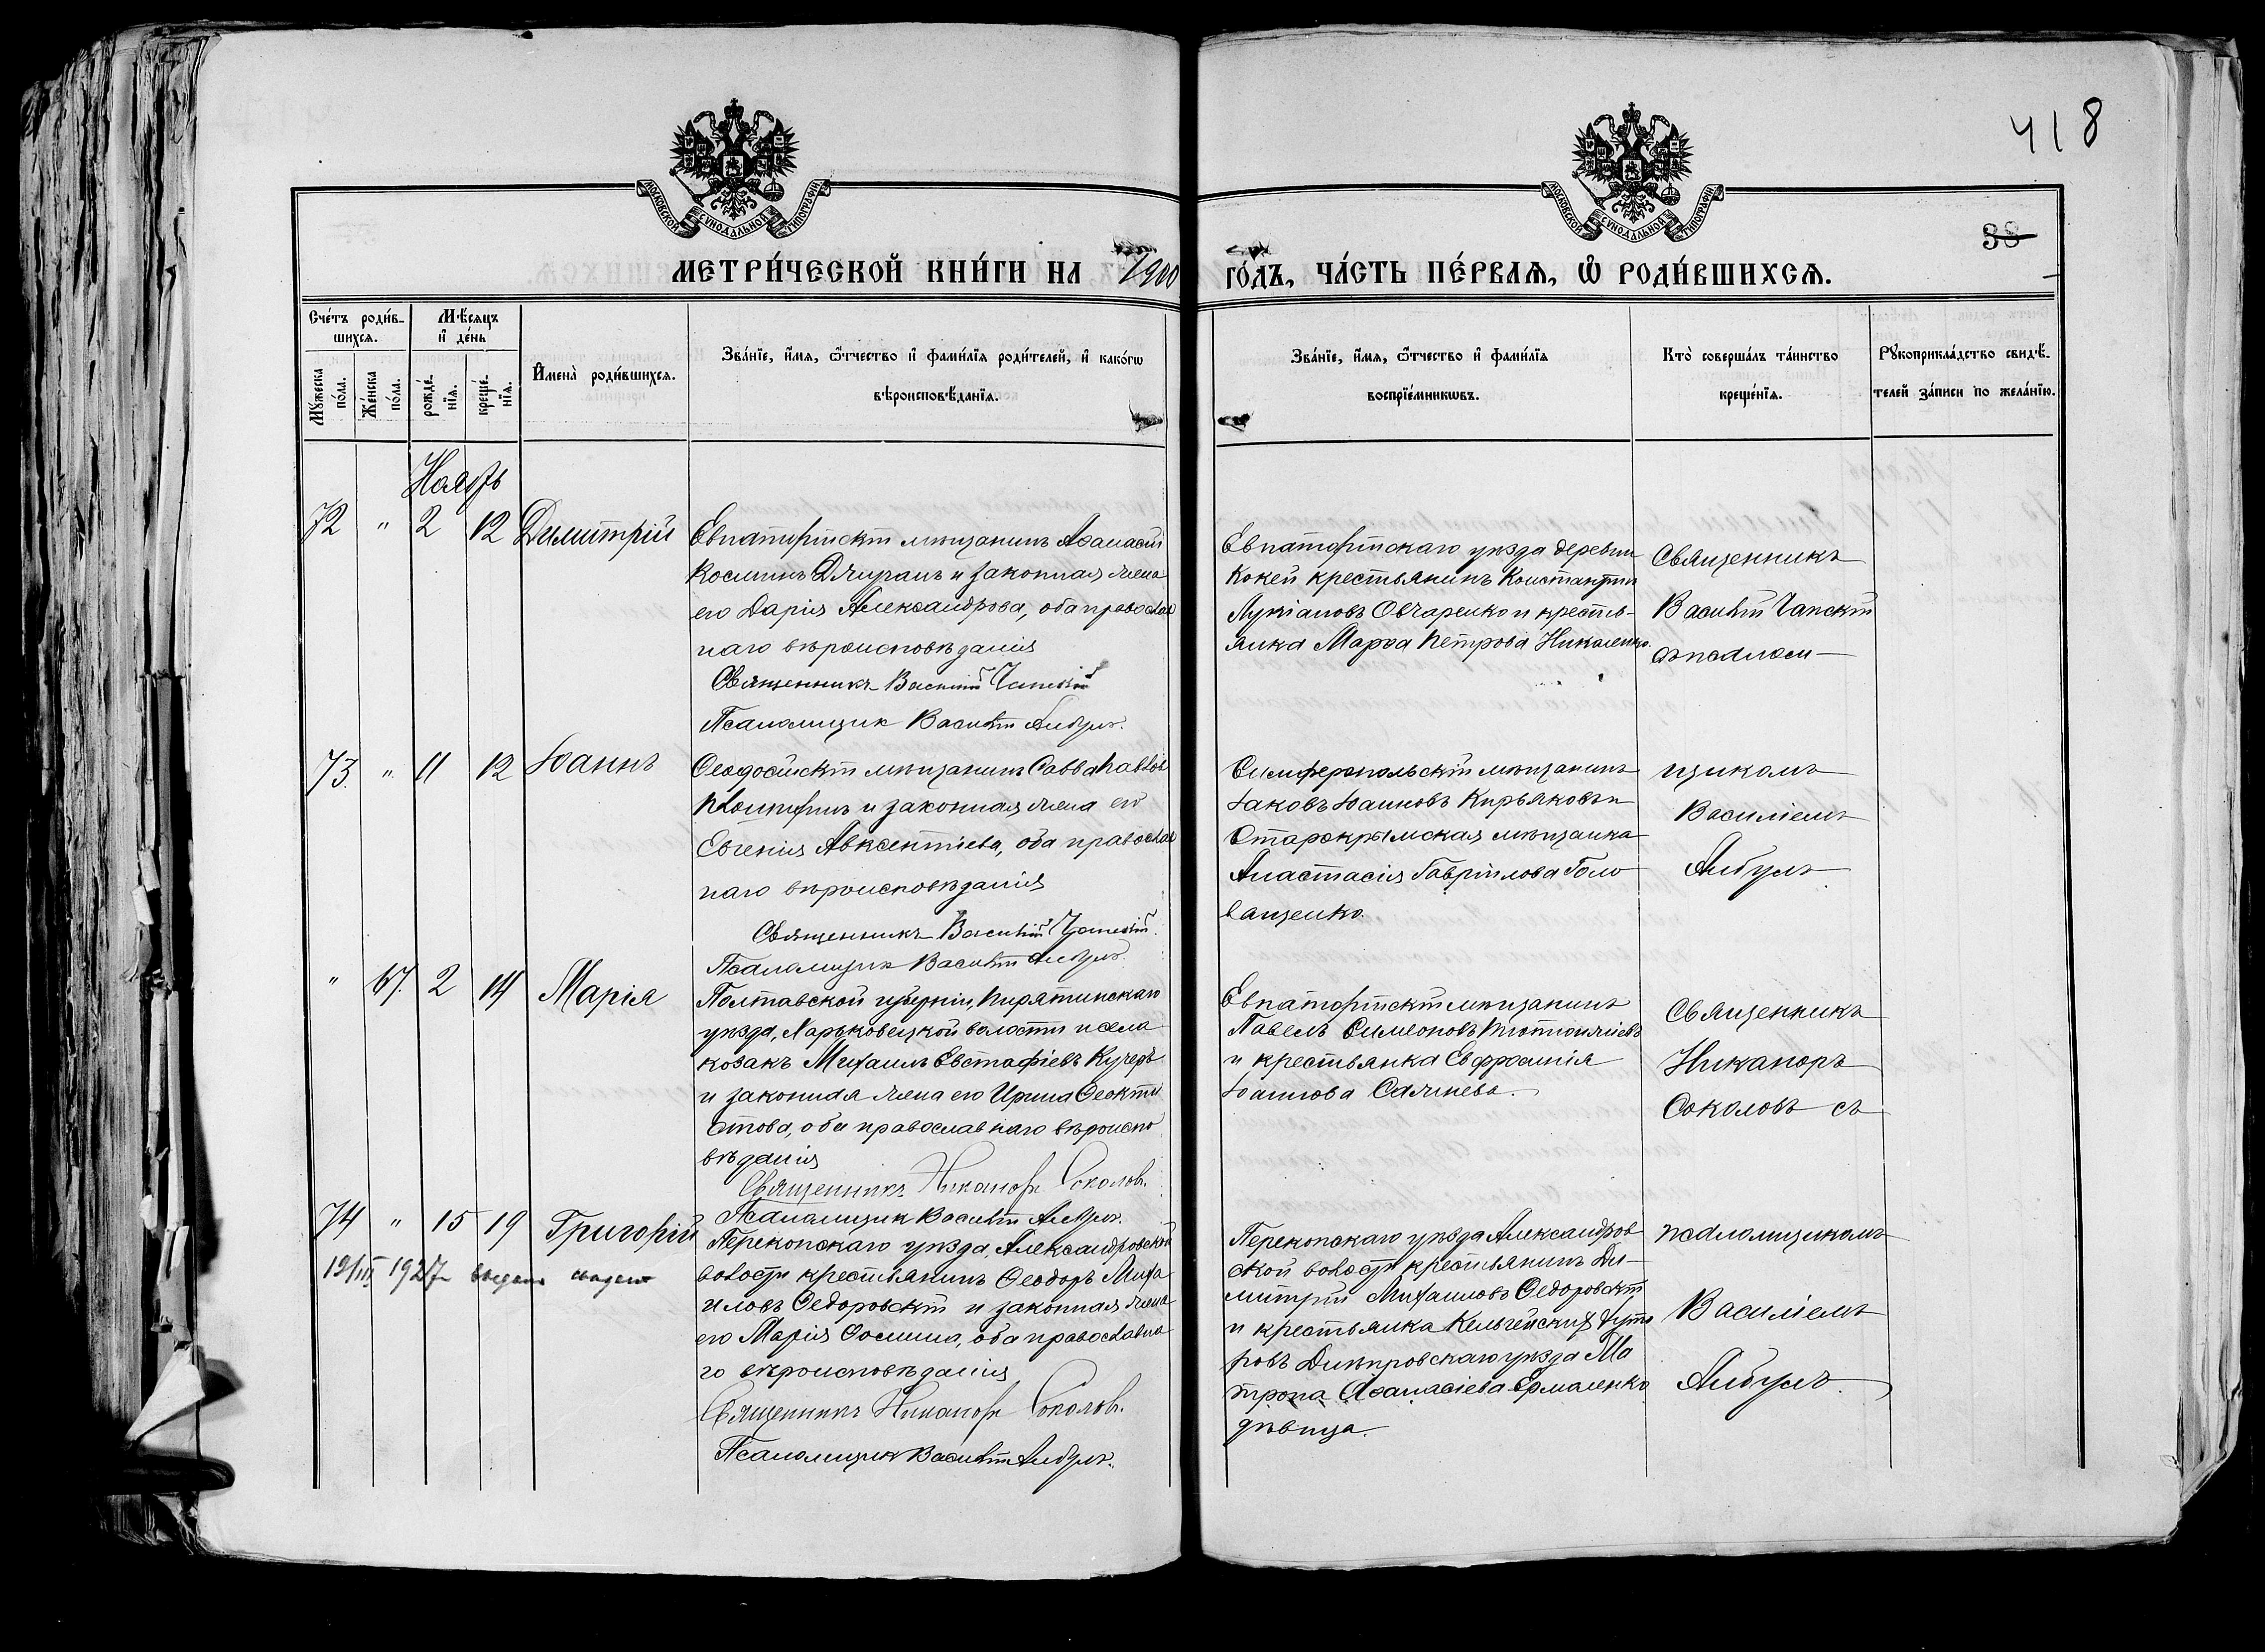 418
38
МОСКОВСКОЙ СѴНОДАЛЬНОЙ ТИПОГРАФІИ
МОСКОВСКОЙ СѴНОДАЛЬНОЙ ТИПОГРАФІИ
МЕТРИ́ЧЕСКОЙ КНИ́ГИ НА 1900
ГО́ДЪ, ЧА́СТЬ ПЕ́РВАЯ, Ѽ РОДИ́ВШИХСЯ.
Сче́тъ роди́в-
шихся.
Мꙋ́жеска по́ла.
Же́нска по́ла.
Мѣ́сяцъ
и҆ де́нь
рожде́-
нїя.
креще́-
нїя.
И҆мена̀ роди́вшихся.
Зва́нїе, и҆́мя, ѻ҆́тчество и҆ фами́лїя роди́телей, и҆ како́гѡ
вѣроисповѣ́данїя.
Зва́нїе, и҆́мя, ѻ҆́тчество и҆ фами́лїя
воспрїе́мникѡвъ.
Кто̀ соверша́лъ та́инство
креще́нїя.
Рꙋкоприкла́дство свидѣ́-
телей за́писи по жела́нїю.
Ноябрь
72 " 2 12 Димитрій
Евпаторійскій мѣщанинъ Аѳанасій
Косминъ и законная жена
его Дарія Александрова, оба православ
наго вѣроисповѣданія
Священникъ Василій Чапскій
Псаломщик Василій Албулъ.
Евпаторійскаго уѣзда деревни
Кокей крестьянинъ Константинъ
Лукіановъ Овчаренко и кресть-
янка Марѳа Петрова Николенко.
Священникъ
Василій Чапскій
съ псалом-
73. " 11 12 Іоаннъ
Ѳеодосійскій мѣщанинъ Савва Павловъ
и законная жена его
Евгенія Авксентіева, оба православ
наго вѣроисповѣданія
Священникъ Василій Чапскій.
Псаломщик Василій Албулъ.
Симферопольскій мѣщанинъ
Іаковъ Іоанновъ Кирьяковъ и
Старокрымская мѣщанка
Анастасія Гавріилова Голо
ващенко.
щикомъ
Василіемъ
Албулъ
" 67. 2 14 Марія
Полтавской губерніи, Пирятинскаго
уѣзда, Харьковецкой волости и села
козакъ Михаилъ Евстафіевъ
и законная жена его Ирина Ѳеокти
стова, оба православнаго вѣроиспо
вѣданія
Священникъ Никаноръ Соколовъ.
Псаломщик Василій Албулъ.
Евпаторійскій мѣщанинъ
Павелъ Симеоновъ
и крестьянка Евфросинія
Іоаннова
Священникъ
Никаноръ
Соколовъ съ
74 " 15 19 Григорій
12/III 1927 г выдано
Перекопскаго уѣзда, Александровской
волости крестьянинъ Ѳеодоръ Миха
иловъ Ѳедоровскій и законная жена
его Марія Ѳомина, оба православна
го вѣроисповѣданія
Священникъ Никаноръ Соколовъ.
Псаломщик Василій Албулъ.
Перекопскаго уѣзда Александров
ской волости крестьянинъ Ди-
митрій Михаиловъ Ѳедоровскій
и крестьянка Кельгейскихъ хуто
ровъ Днѣпровскаго уѣзда Ма
трона Аѳанасіева Ермаленко
дѣвица.
псаломщикомъ
Василіемъ
Албулъ.